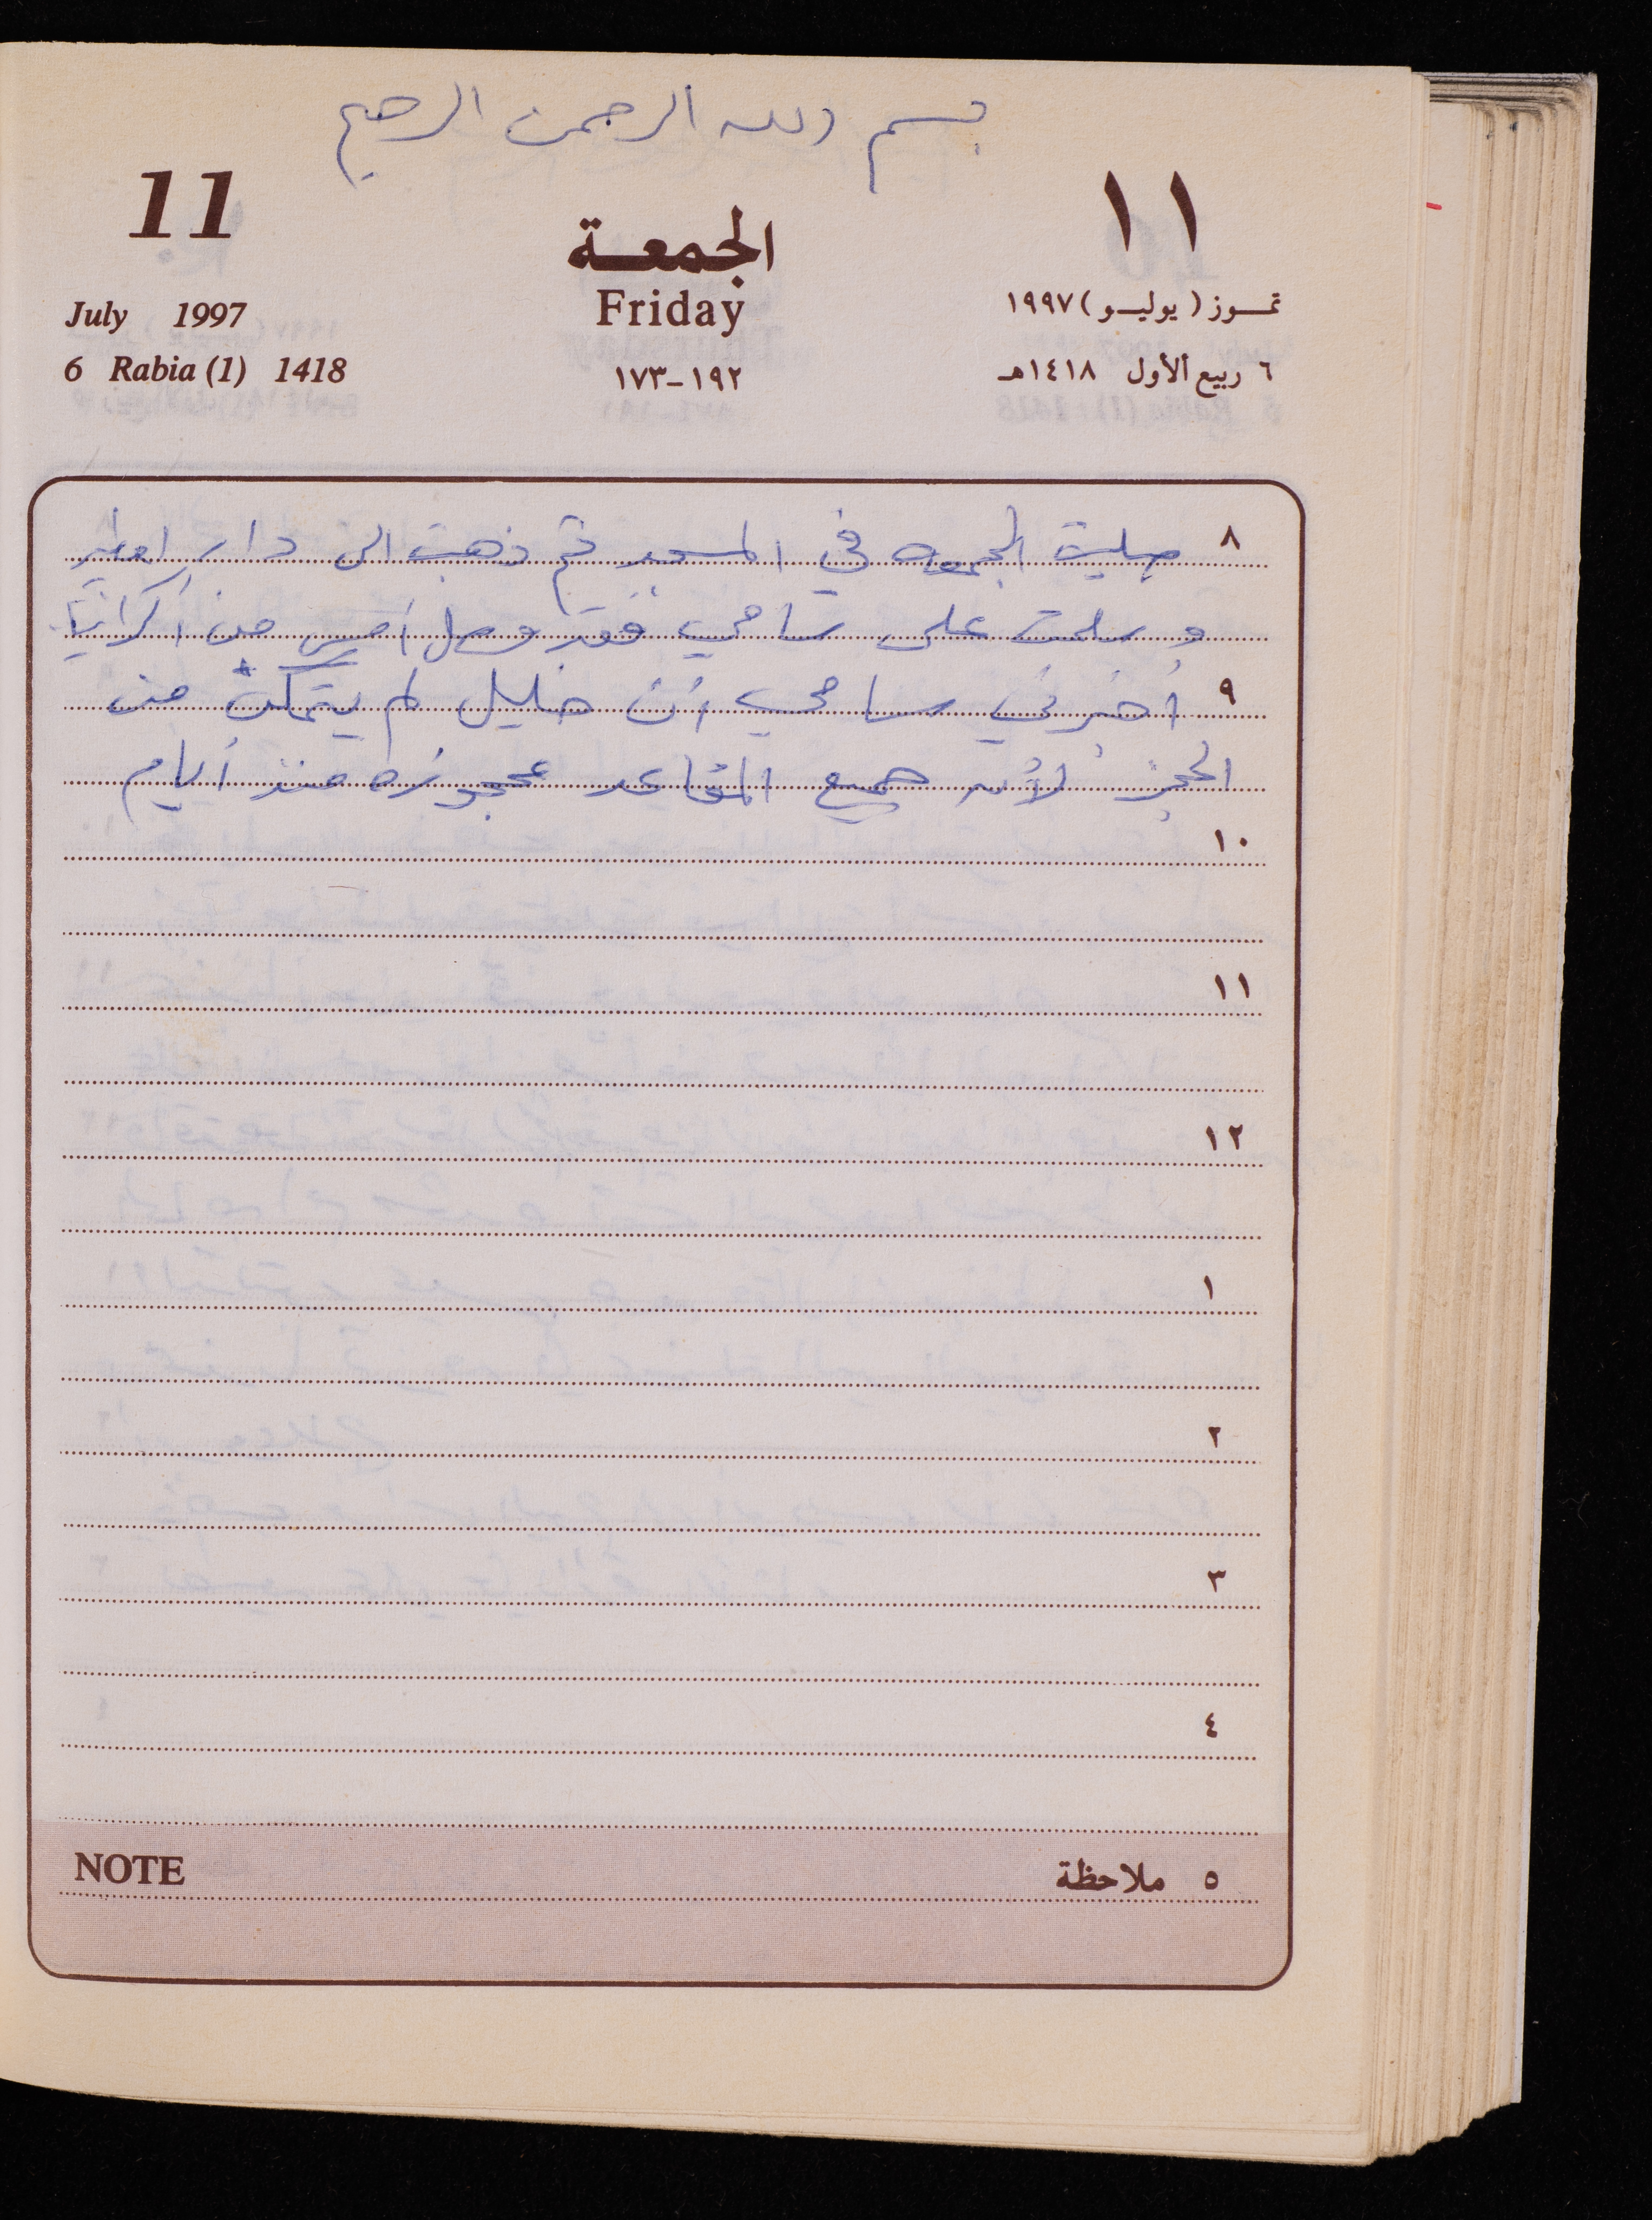 بسم الله الرحمن الرحيم
11 ١١
الجمعة
July 1997 Friday تمـوز ( يوليـو ) ١٩٩٧
6 Rabia (1) 1418 ١٩٢-١٧٣ ٦ ربيع الأول ١٤١٨هـ
٨ صليت الجمعه في المسجد ثم ذهبت الى دار
و سلمت على سامي فقد وصل أمس من اكرانيا
٩ أخبرني سامي أن خليل لم يتمكن من
الحجز لأن جميع المقاعد محجوزه منذ أيام
١٠
١١
١٢
١
٢
٣
٤
NOTE ٥ ملاحظة